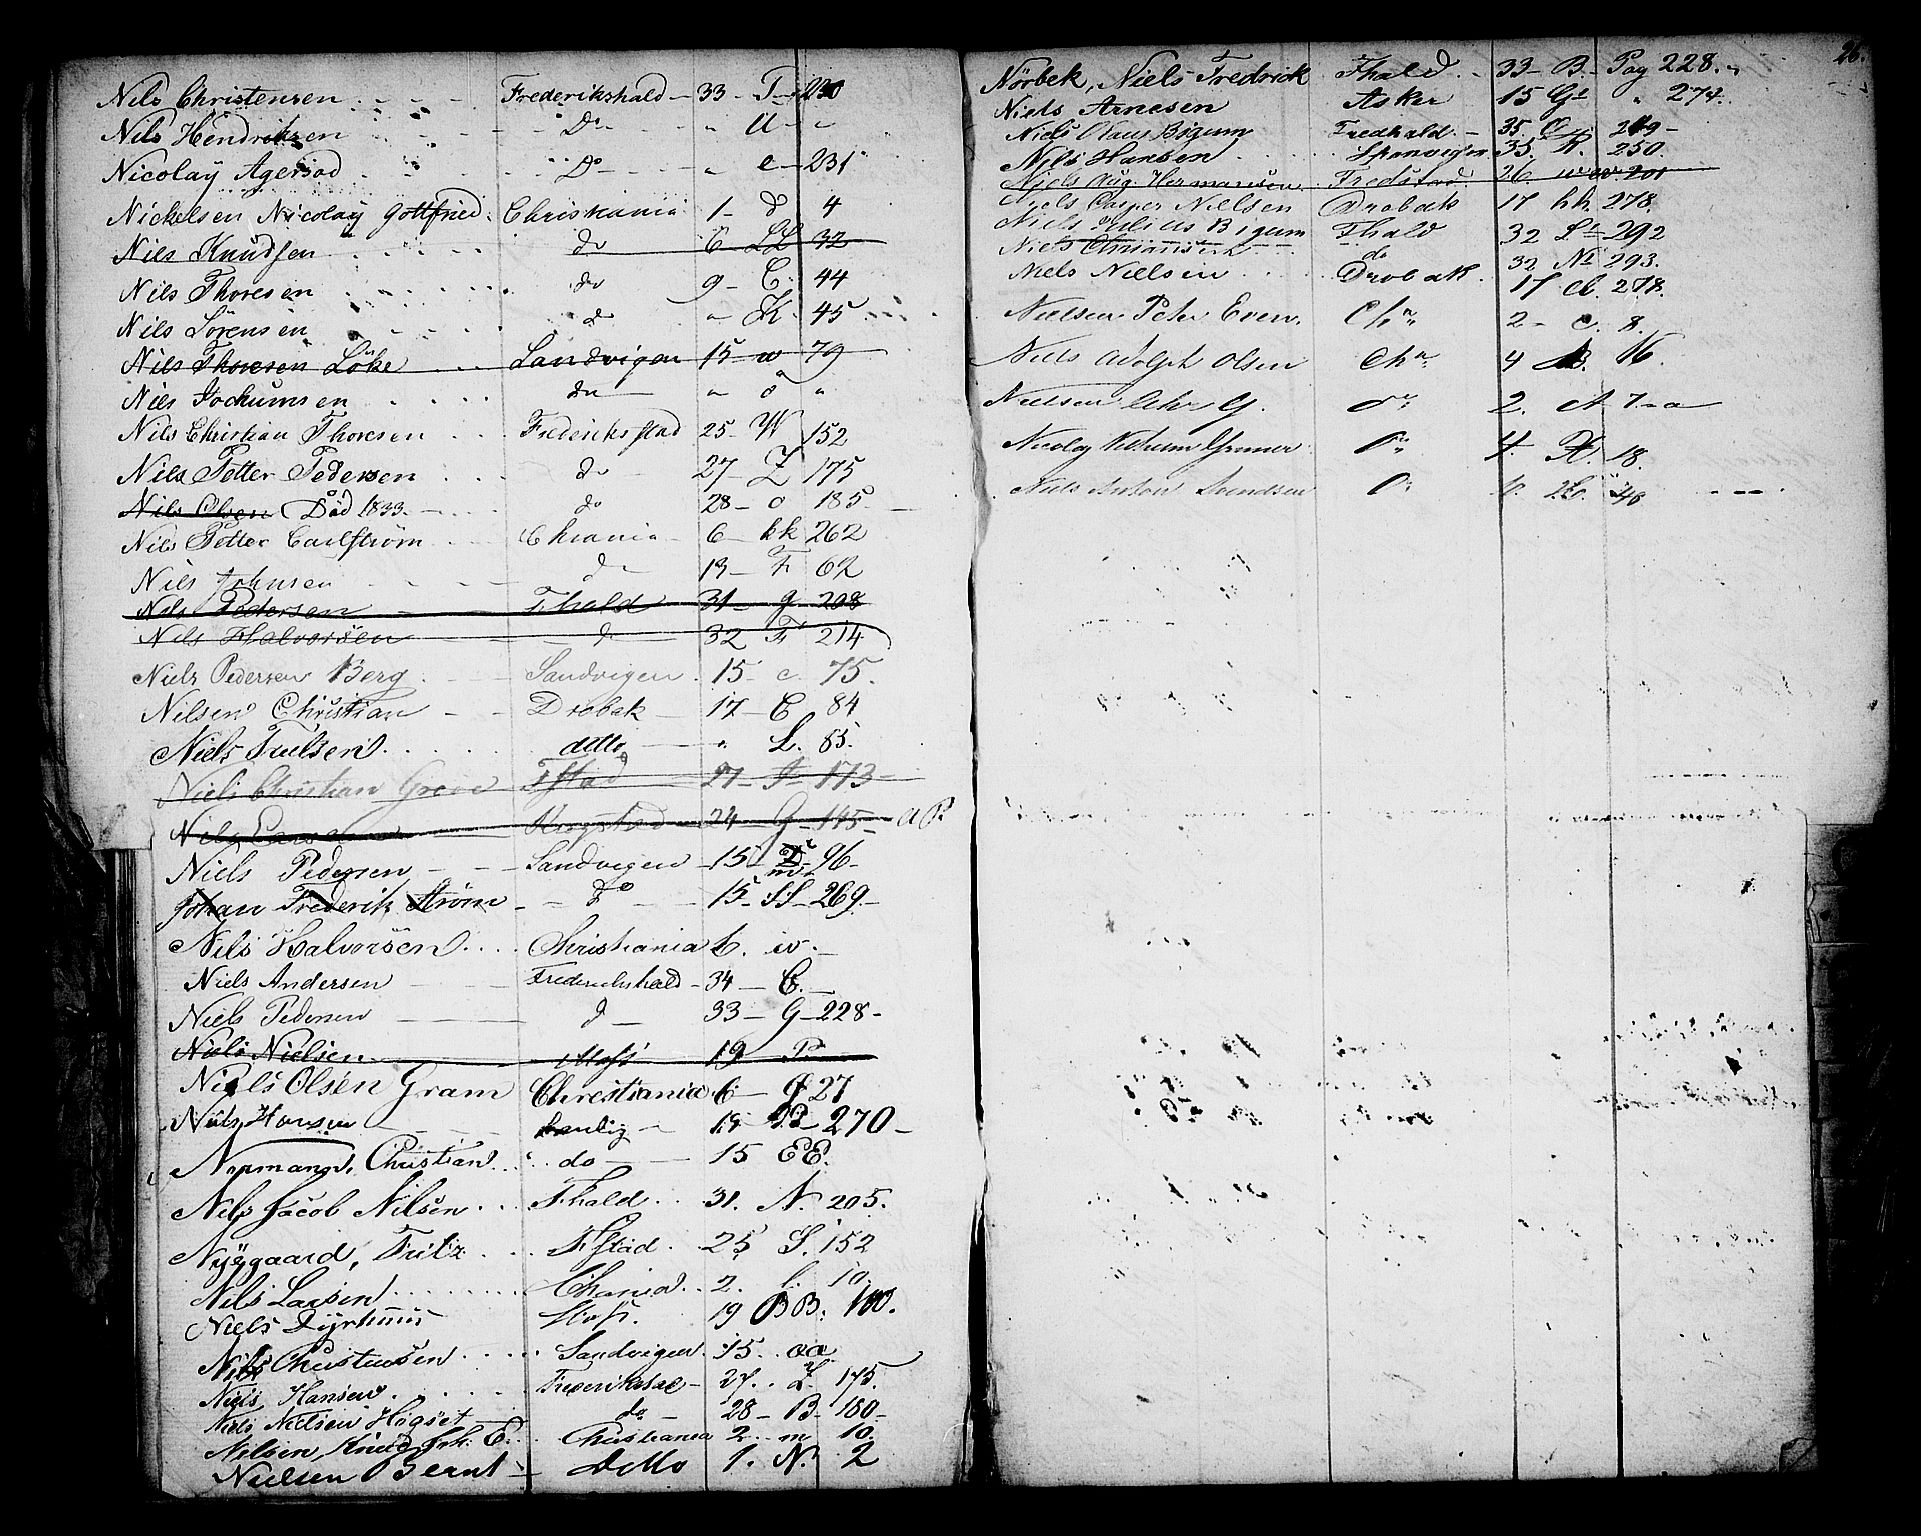 Nils Christensen Frederikshald 33 T 230
Nils Hendriksen Do " U "
Nicolay Agersod Do " e 231
Nickelsen Nicolay Gottfried Christiania 1 d 4
Nils Knudsen do 6 LL 32
Nils Thoresen do 9 C 44
Nils Sörensen do " K 45
Nils Thoresen Löke Sandvigen 15 w 79
Nils Jochumsen do " ö "
Nils Christian Thoresen Frederiksstad 25 W 152
Nils Petter Pedersen do 27 Z 175
Nils Olsen (Död 1833 do 28 o 185
Nils Petter Carlström Chrania 6 kk 262
Nils Johnsen do 13 F 62
Nils Pedersen Fhald 31 g 208
Nils Halvorsen do 32 F 214
Niels Pedersen Berg Sandvigen 15 c 75
Nilsen Christian Drobak 17 C 84
Niels Trulsen ditto " L. 85
Niels Christian Grove Fstad 27 173
Nils Larsen 24 G 145
Niels Pedersen Sandvigen 15 96
Johan Frederik Strøm do 15 SS 269
Nils Halvorsen Christiania 6. w.
Niels Andersen Frederikshald 34 C.
Niels Pedersen d 33 G 228
Niels Nielsen Moss 19 P
Niels Olsen Gram Christiania 6 27
Niels Hansen 270
Normand, Christian do 15 EE.
Nils Jacob Nilsen Fhald 31. N. 205.
Nÿgaard, Fritz Fstad 25 S. 152
Nils Larsen Chania 2. l. 10
Niels Dyrhuus Moss. 19 BB. 100.
Nils Christensen Sandvigen 15 aa
Niels Hansen 27 Z. 175.
Niels Nielsen Högset do 28 B 180
Nilsen, Knud Joh. E. Christiania 2 m 10.
Nielsen Bernt Ditto 1. N. 2
26.
Nörbek, Niels Fredrick Fhald 33 B. Pag 228.
Niels Arnesen Asker 15 " 274.
Niels Olaus Bigum Fredhald 35. 249
Nils Hansen 35. K. 250.
Niels Aug. Hermansen Fredstad 26. w 201
Niels Casper Nielsen Drobak 17 hh. 278.
Niels Julius Bigum Fhald 32 292
Niels Christiansen do 32 293.
Niels Nielsen Drobak. 17 278.
Nielsen Peter Even. Chr. 2 c. 8.
Niels Adolph Olsen Cha. 4 B. 16.
Nielsen Chr G. Do 2. A 7 a
Nicolay 4. 18.
Niels Anton Svendsen